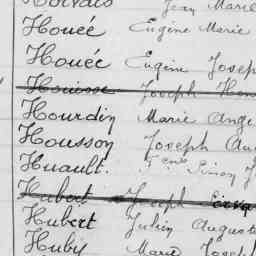 Jean Marie
Houée Eugène Marie
Houée Eugène Joseph
Houisse Joseph
Hourdin Marie Ange
Housson Joseph
Huault
Hubert Joseph
Hubert Julien Auguste
Huby Marie Joseph